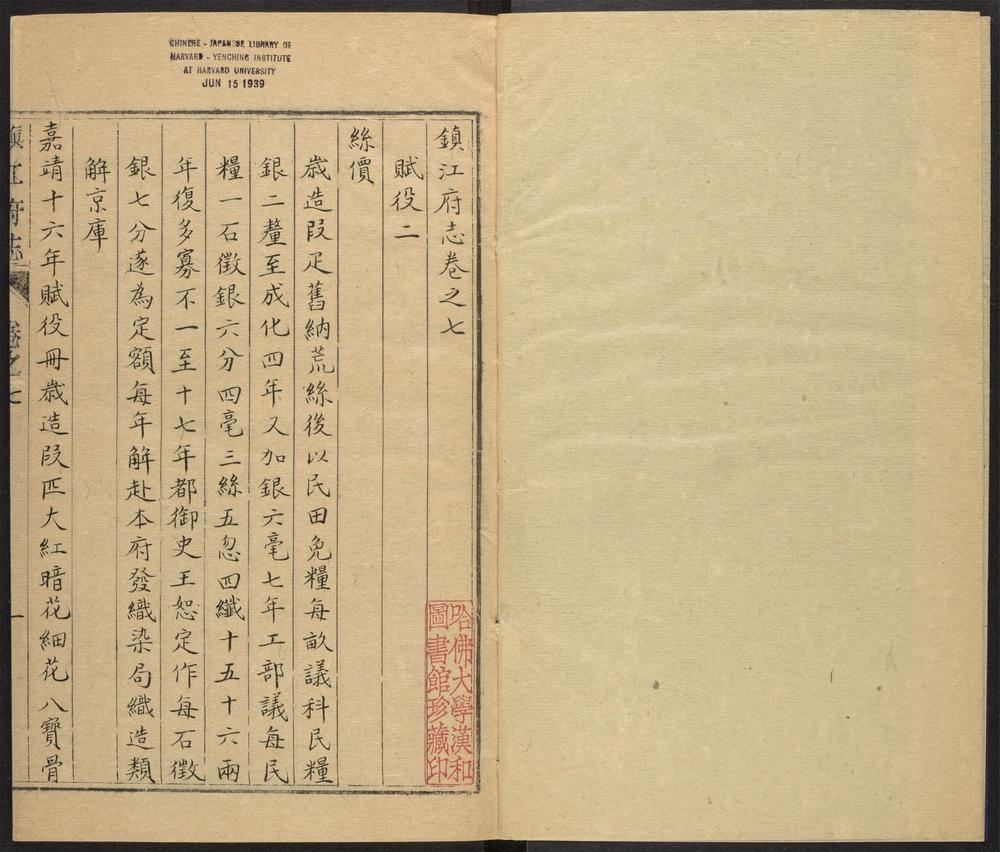 CHINESE - JAPANESE LIBRARY OF
HARVARD - YENCHING INSTITUTE
AT HARVARD UNIVERSITY
JUN 15 1939
鎮江府志卷之七
賦役二
絲價
歲造段疋舊納荒絲後以民田免糧每畝議科民糧
銀二釐至成化四年又加銀六毫七年工部議每民
糧一石徵銀六分四毫三絲五忽四纖十五十六兩
年復多寡不一至十七年都御史王恕定作每石徵
銀七分遂為定額每年解赴本府發織染局織造類
解京庫
嘉靖十六年賦役冊歲造段匹大紅暗花細花八寶骨
鎮江府志 卷之七 一
哈佛大學漢和
圖書館珍藏印